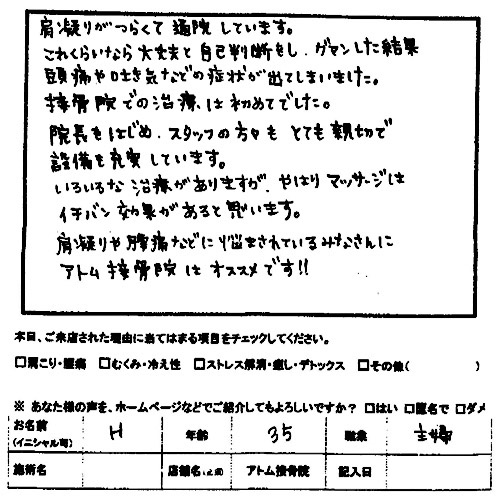 肩凝りがつらくて通院しています。
これくらいなら大丈夫と自己判断をし、ガマンした結果
頭痛や吐き気などの症状が出てしまいました。
接骨院での治療は初めてでした。
院長をはじめ、スタッフの方々もとても親切で
設備も充実しています。
いろいろな治療がありますが、やはりマッサージは
イチバン効果があると思います。
肩凝りや腰痛などに悩まされているみなさんに
アトム接骨院はオススメです!!
本日、ご来店された理由に当てはまる項目をチェックしてください。
□肩こり・腰痛 □むくみ・冷え性 □ストレス解消・癒し・デトックス □その他( )
※ あなた様の声を、ホームページなどでご紹介してもよろしいですか? □はい □匿名で □ダメ
お名前 (イニシャル可) H 年齢 35 職業 主婦
施術名 店舗名 アトム接骨院 記入日